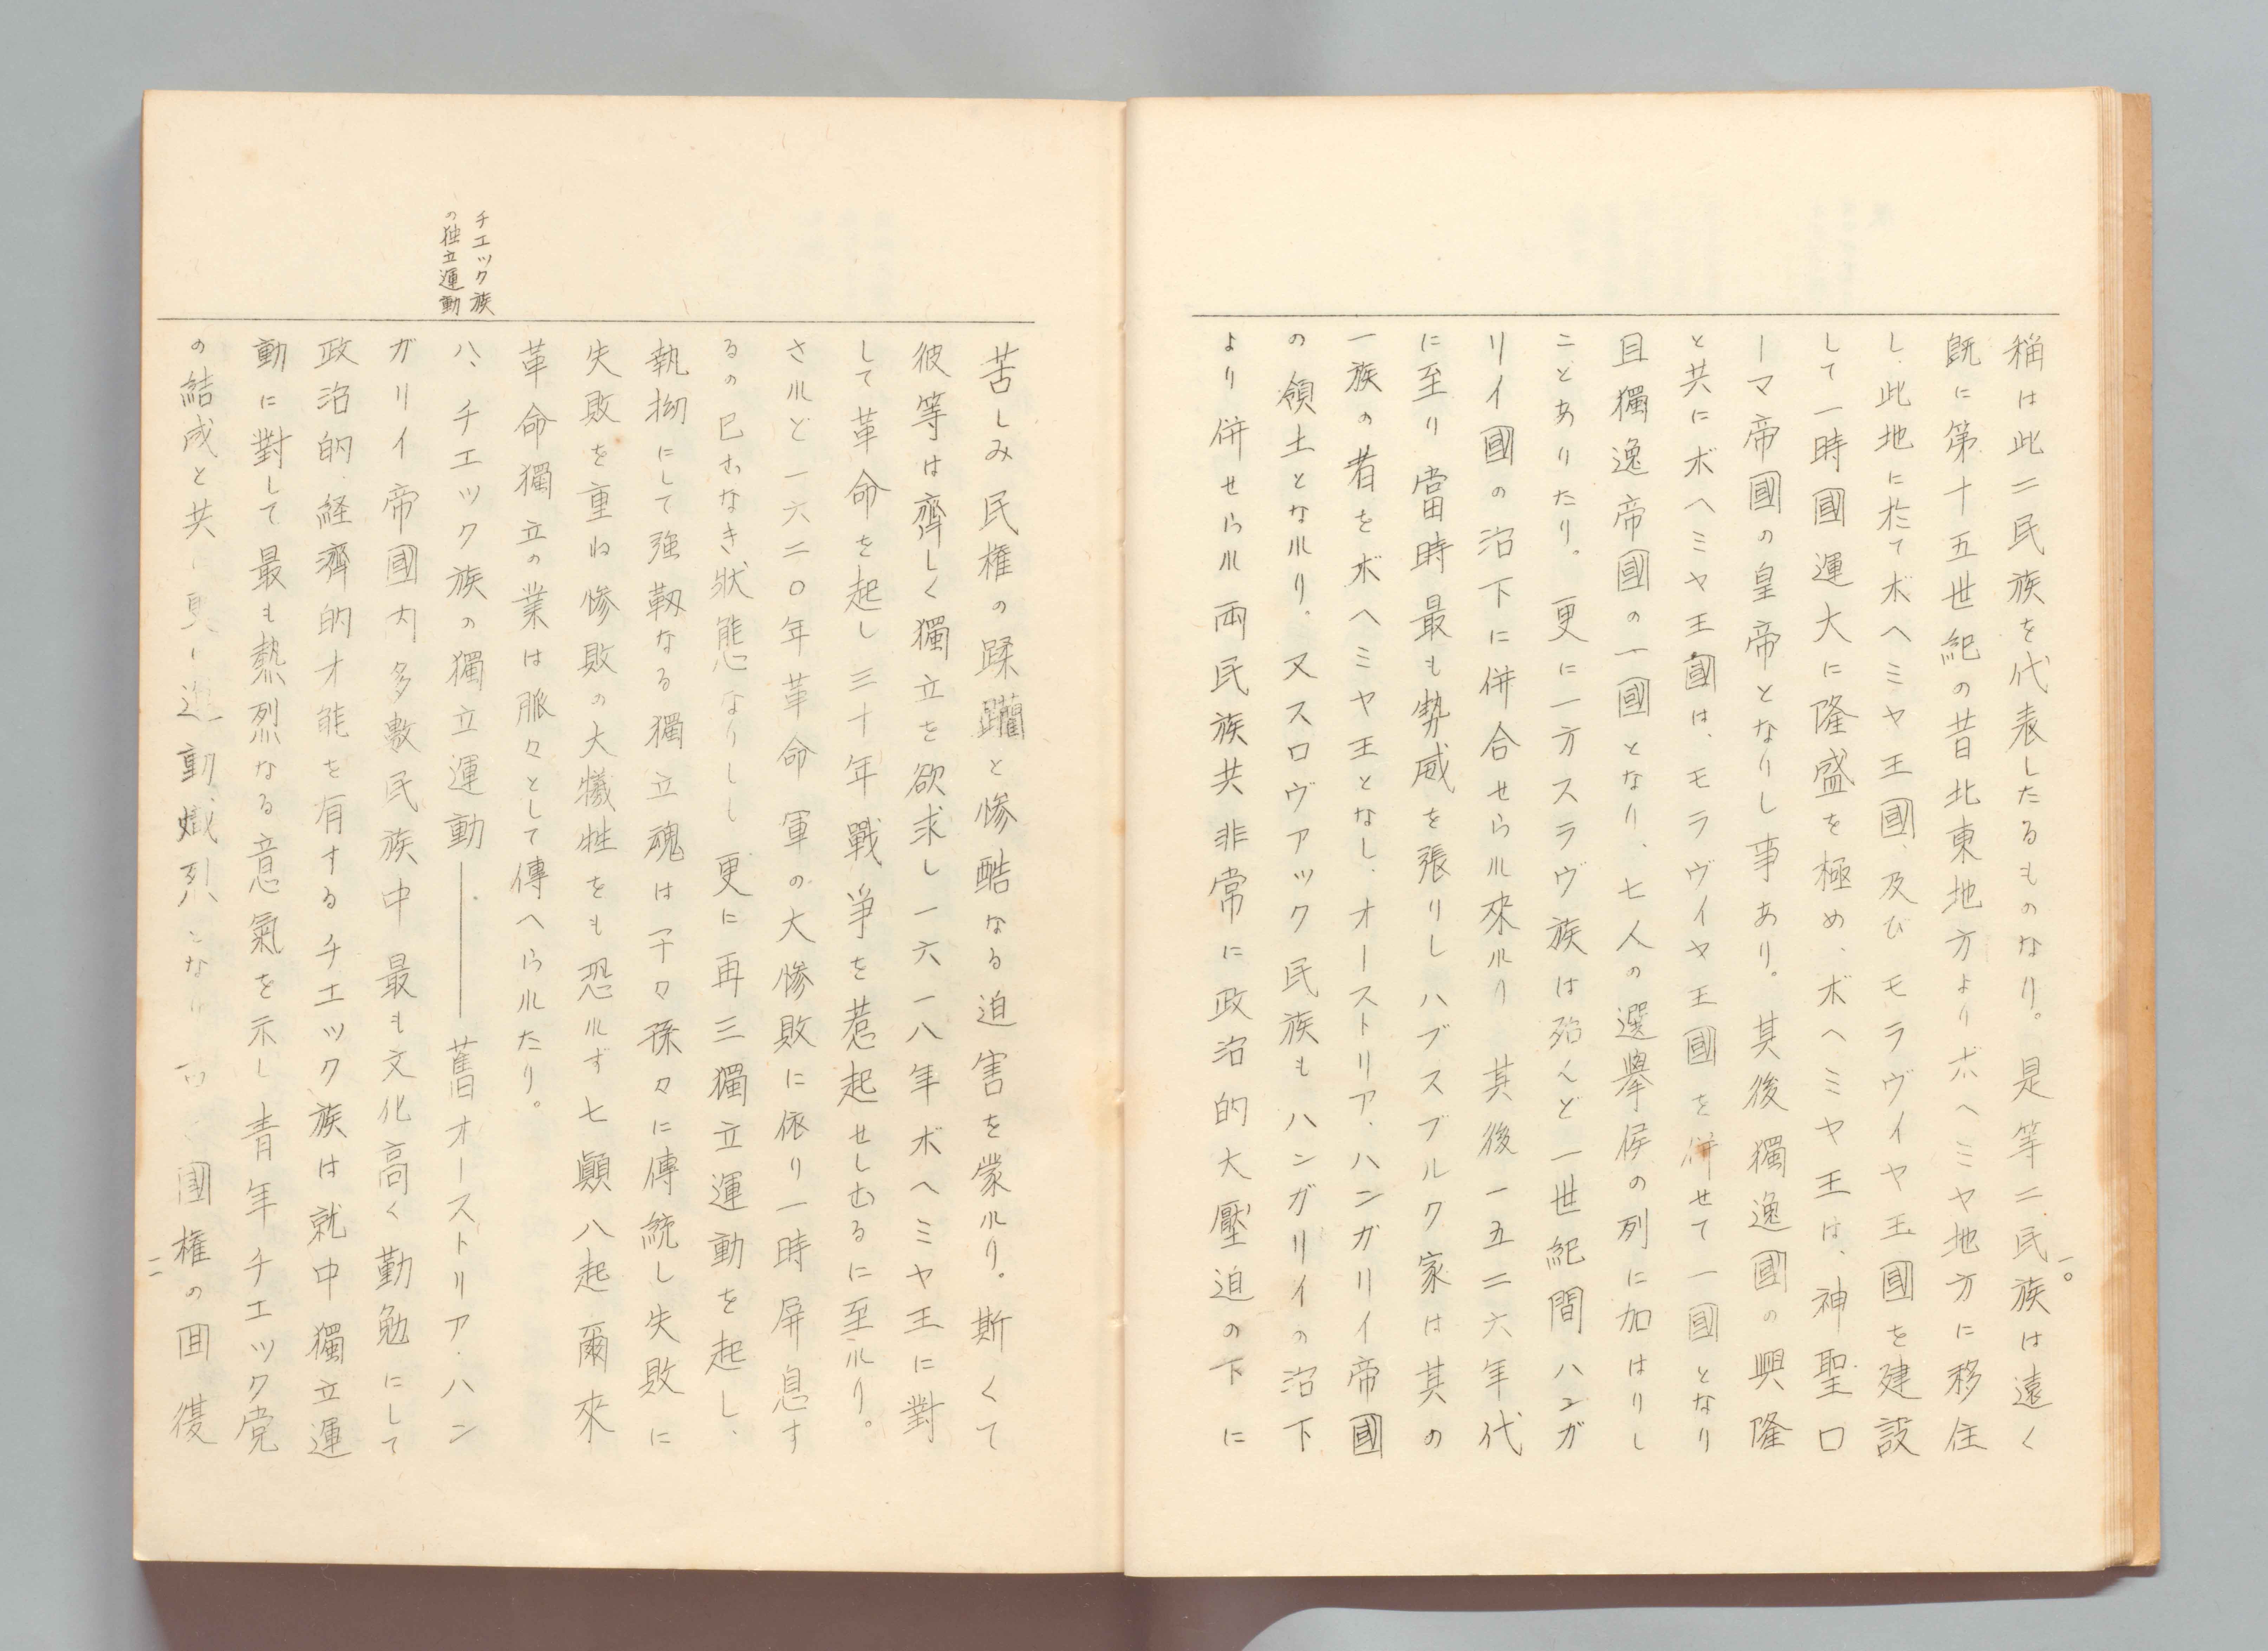 稱は此二民族を代表したるものなり。是等二民族は遠く
既に第十五世紀の昔北東地方よりボヘミヤ地方に移住
し、此地に於てボヘミヤ王國、及びモラヴイヤ王國を建設
して一時國運大に隆盛を極め、ボヘミヤ王は、神聖ロ
ーマ帝國の皇帝となりし事あり。其後獨逸國の興隆
と共にボヘミヤ王國は、モラヴイヤ王國を併せて一國となり
且獨逸帝國の一國となり、七人の選擧侯の列に加はりし
ことありたり。更に一方スラヴ族は殆んど一世紀間ハンガ
リイ國の治下に併合せられ來れり 其後一五二六年代
に至り當時最も勢威を張りしハブスブルク家は其の
一族の者をボヘミヤ王となし、オーストリア・ハンガリイ帝國
の領土となれり。又スロヴアック民族もハンガリイの治下
より併せられ兩民族共非常に政治的大壓迫の下に
一〇
苦しみ民権の蹂躙と惨酷なる迫害を蒙れり。斯くて
彼等は齊しく獨立を欲求し一六一八年ボヘミヤ王に對
して革命を起し三十年戰爭を惹起せしむるに至れり。
されど一六二〇年革命軍の大惨敗に依り一時屏息す
るの已むなき狀態なりしし更に再三獨立運動を起し、
執拗にして強靱なる獨立魂は子々孫々に傳統し失敗に
失敗を重ね惨敗の大犠牲をも恐れず七顚八起爾來
革命獨立の業は脈々として傳へられたり。
チエック族
の独立運動
ハ、チエック族の獨立運動――舊オーストリア・ハン
ガリイ帝國内多數民族中最も文化高く勤勉にして
政治的経濟的才能を有するチエック族は就中獨立運
動に對して最も熱烈なる意氣を示し青年チエック党
の結成と共 更 進 動熾烈 な 國権の回復
二